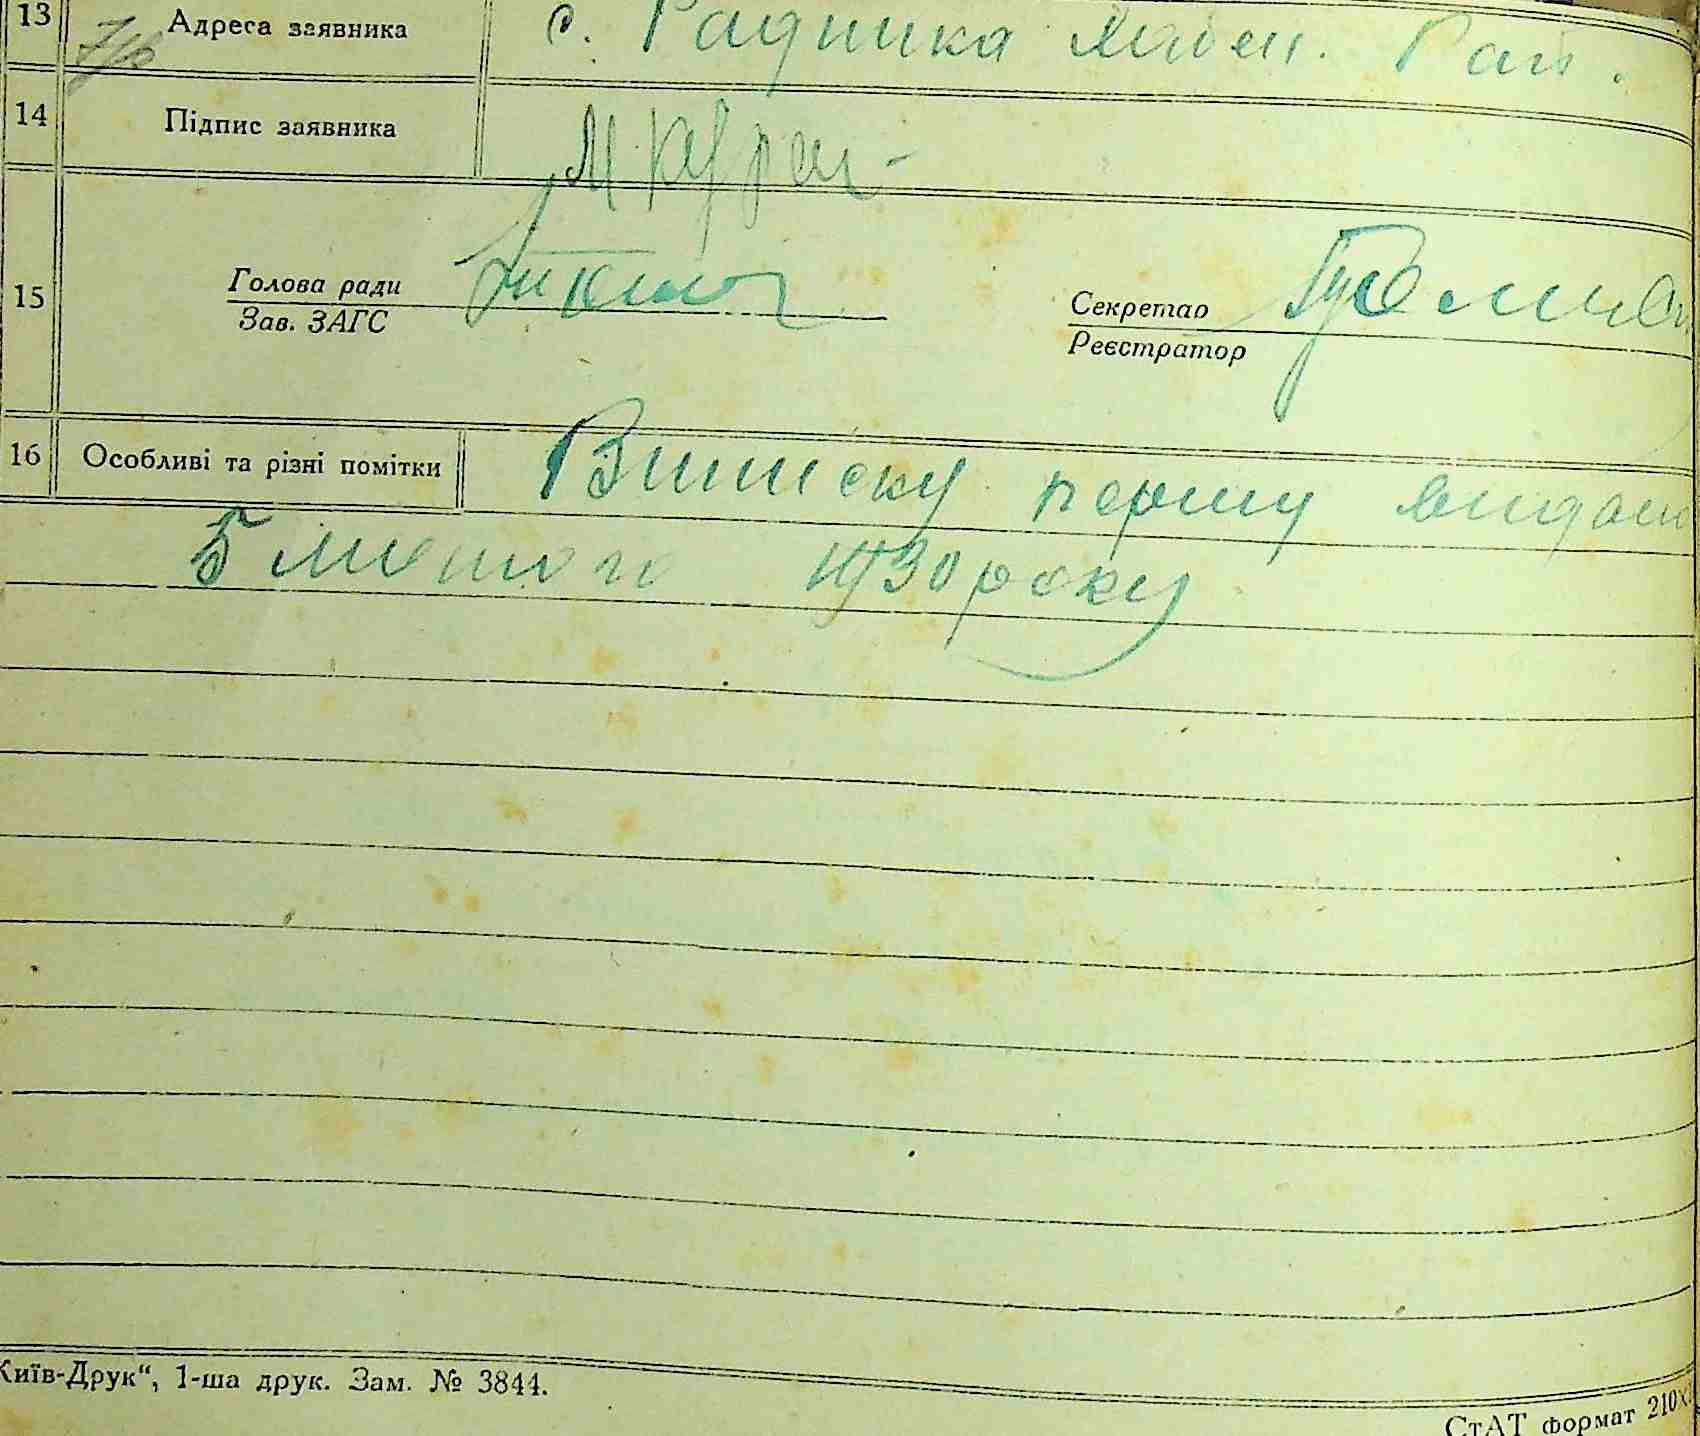 13 Адреса заявника с. Радчика Рай.
14 Підпис заявника
15 Голова ради Секретар
Зав. ЗАГС Реєстратор
16 Особливі та різні помітки Виписку першу видан
5 лютого 1930 року
Київ-Друк“, 1-ша друк. Зам. № 3844.
СтАТ формат 210×